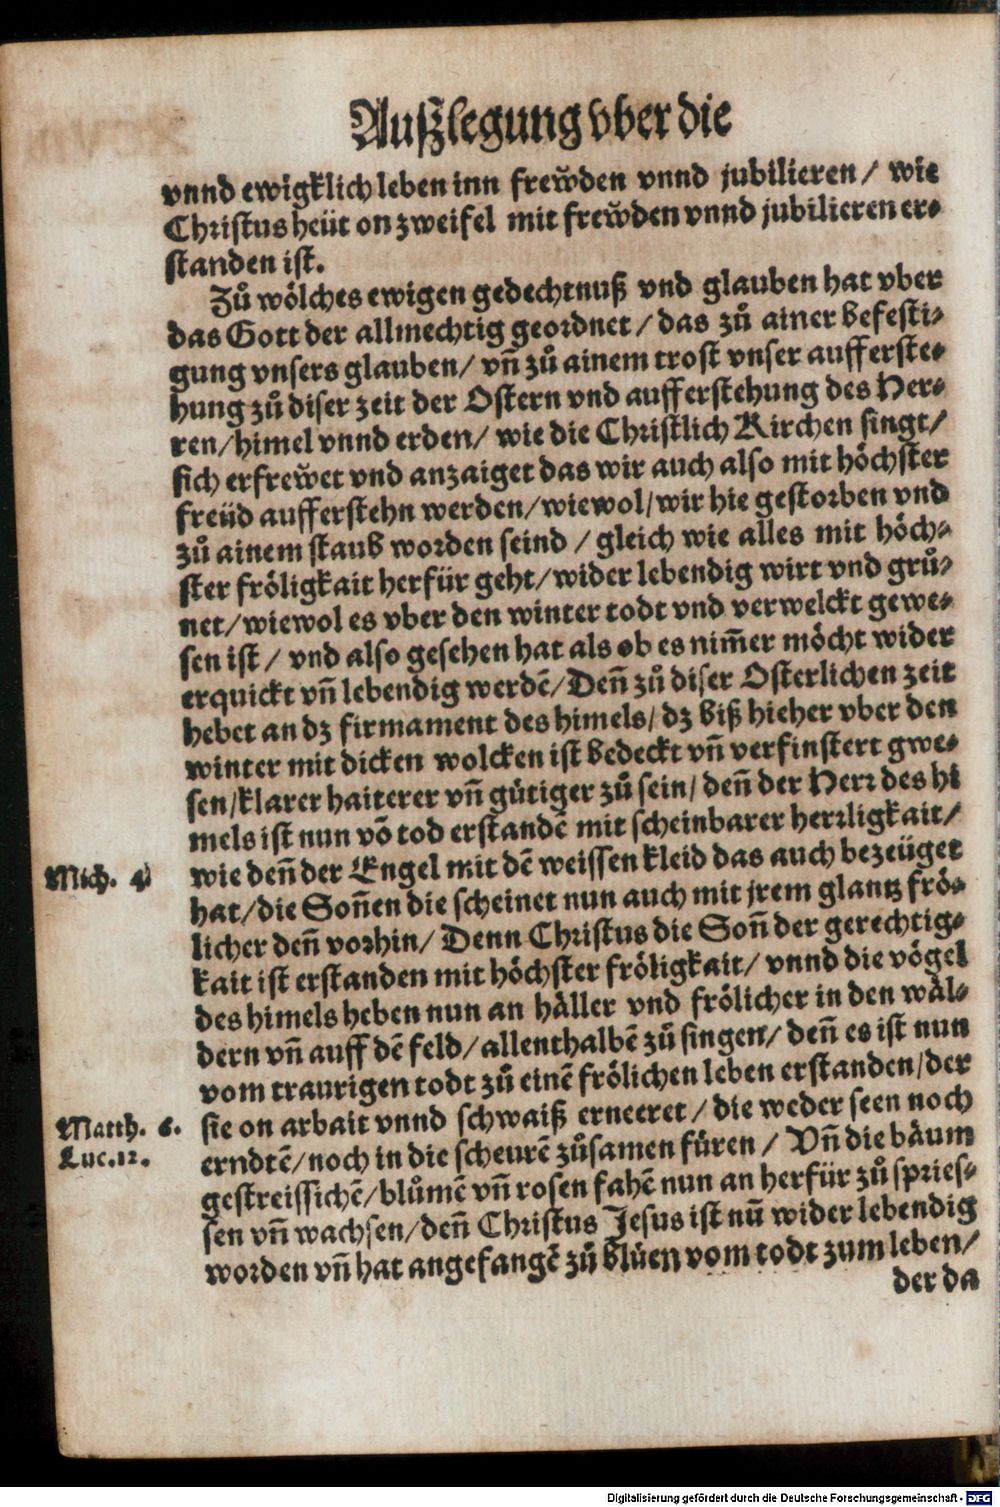 Außlegung vber die
vnnd ewigklich leben inn frew̆den vnnd jubilieren / wie
Christus heüt on zweifel mit frew̆den vnnd jubilieren er-
standen ist.
Zů wölches ewigen gedechtnuß vnd glauben hat vber
das Gott der allmechtig geordnet / das zů ainer befesti-
gung vnsers glauben / vn̄ zů ainem trost vnser aufferste-
hung zů diser zeit der Ostern vnd aufferstehung des Her-
ren / himel vnnd erden / wie die Christlich Kirchen singt /
sich erfrew̆et vnd anzaiget das wir auch also mit höchster
freüd aufferstehn werden / wiewol / wir hie gestorben vnd
zů ainem staub worden seind / gleich wie alles mit höch-
ster fröligkait herfür geht / wider lebendig wirt vnd grů-
net / wiewol es vber den winter todt vnd verwelckt gewe-
sen ist / vnd also gesehen hat als ob es nim̄er möcht wider
erquickt vn̄ lebendig werdē / Den̄ zů diser Osterlichen zeit
hebet an dz firmament des himels / dz biß hieher vber den
winter mit dicken wolcken ist bedeckt vn̄ verfinstert gwe-
sen / klarer haiterer vn̄ gütiger zů sein / den̄ der Herr des hi
mels ist nun vō tod erstandē mit scheinbarer herrligkait /
Mich. 4
wie den̄ der Engel mit dē weissen kleid das auch bezeüget
hat / die Son̄en die scheinet nun auch mit jrem glantz frö-
licher den̄ vorhin / Denn Christus die Son̄ der gerechtig-
kait ist erstanden mit höchster fröligkait / vnnd die vögel
des himels heben nun an häller vnd frölicher in den wäl-
dern vn̄ auff dē feld / allenthalbē zů singen / den̄ es ist nun
vom traurigen todt zů einē frölichen leben erstanden / der
Matth. 6.
sie on arbait vnnd schwaiß erneeret / die weder seen noch
Luc. 12.
erndtē / noch in die scheurē zůsamen füren / Vn̄ die bäum
gestreissichē / blůmē vn̄ rosen fahē nun an herfür zů spries-
sen vn̄ wachsen / den̄ Christus Jesus ist nū wider lebendig
worden vn̄ hat angefangē zů blüen vom todt zum leben /
der da
Digitalisierung gefördert durch die Deutsche Forschungsgemeinschaft - DFG